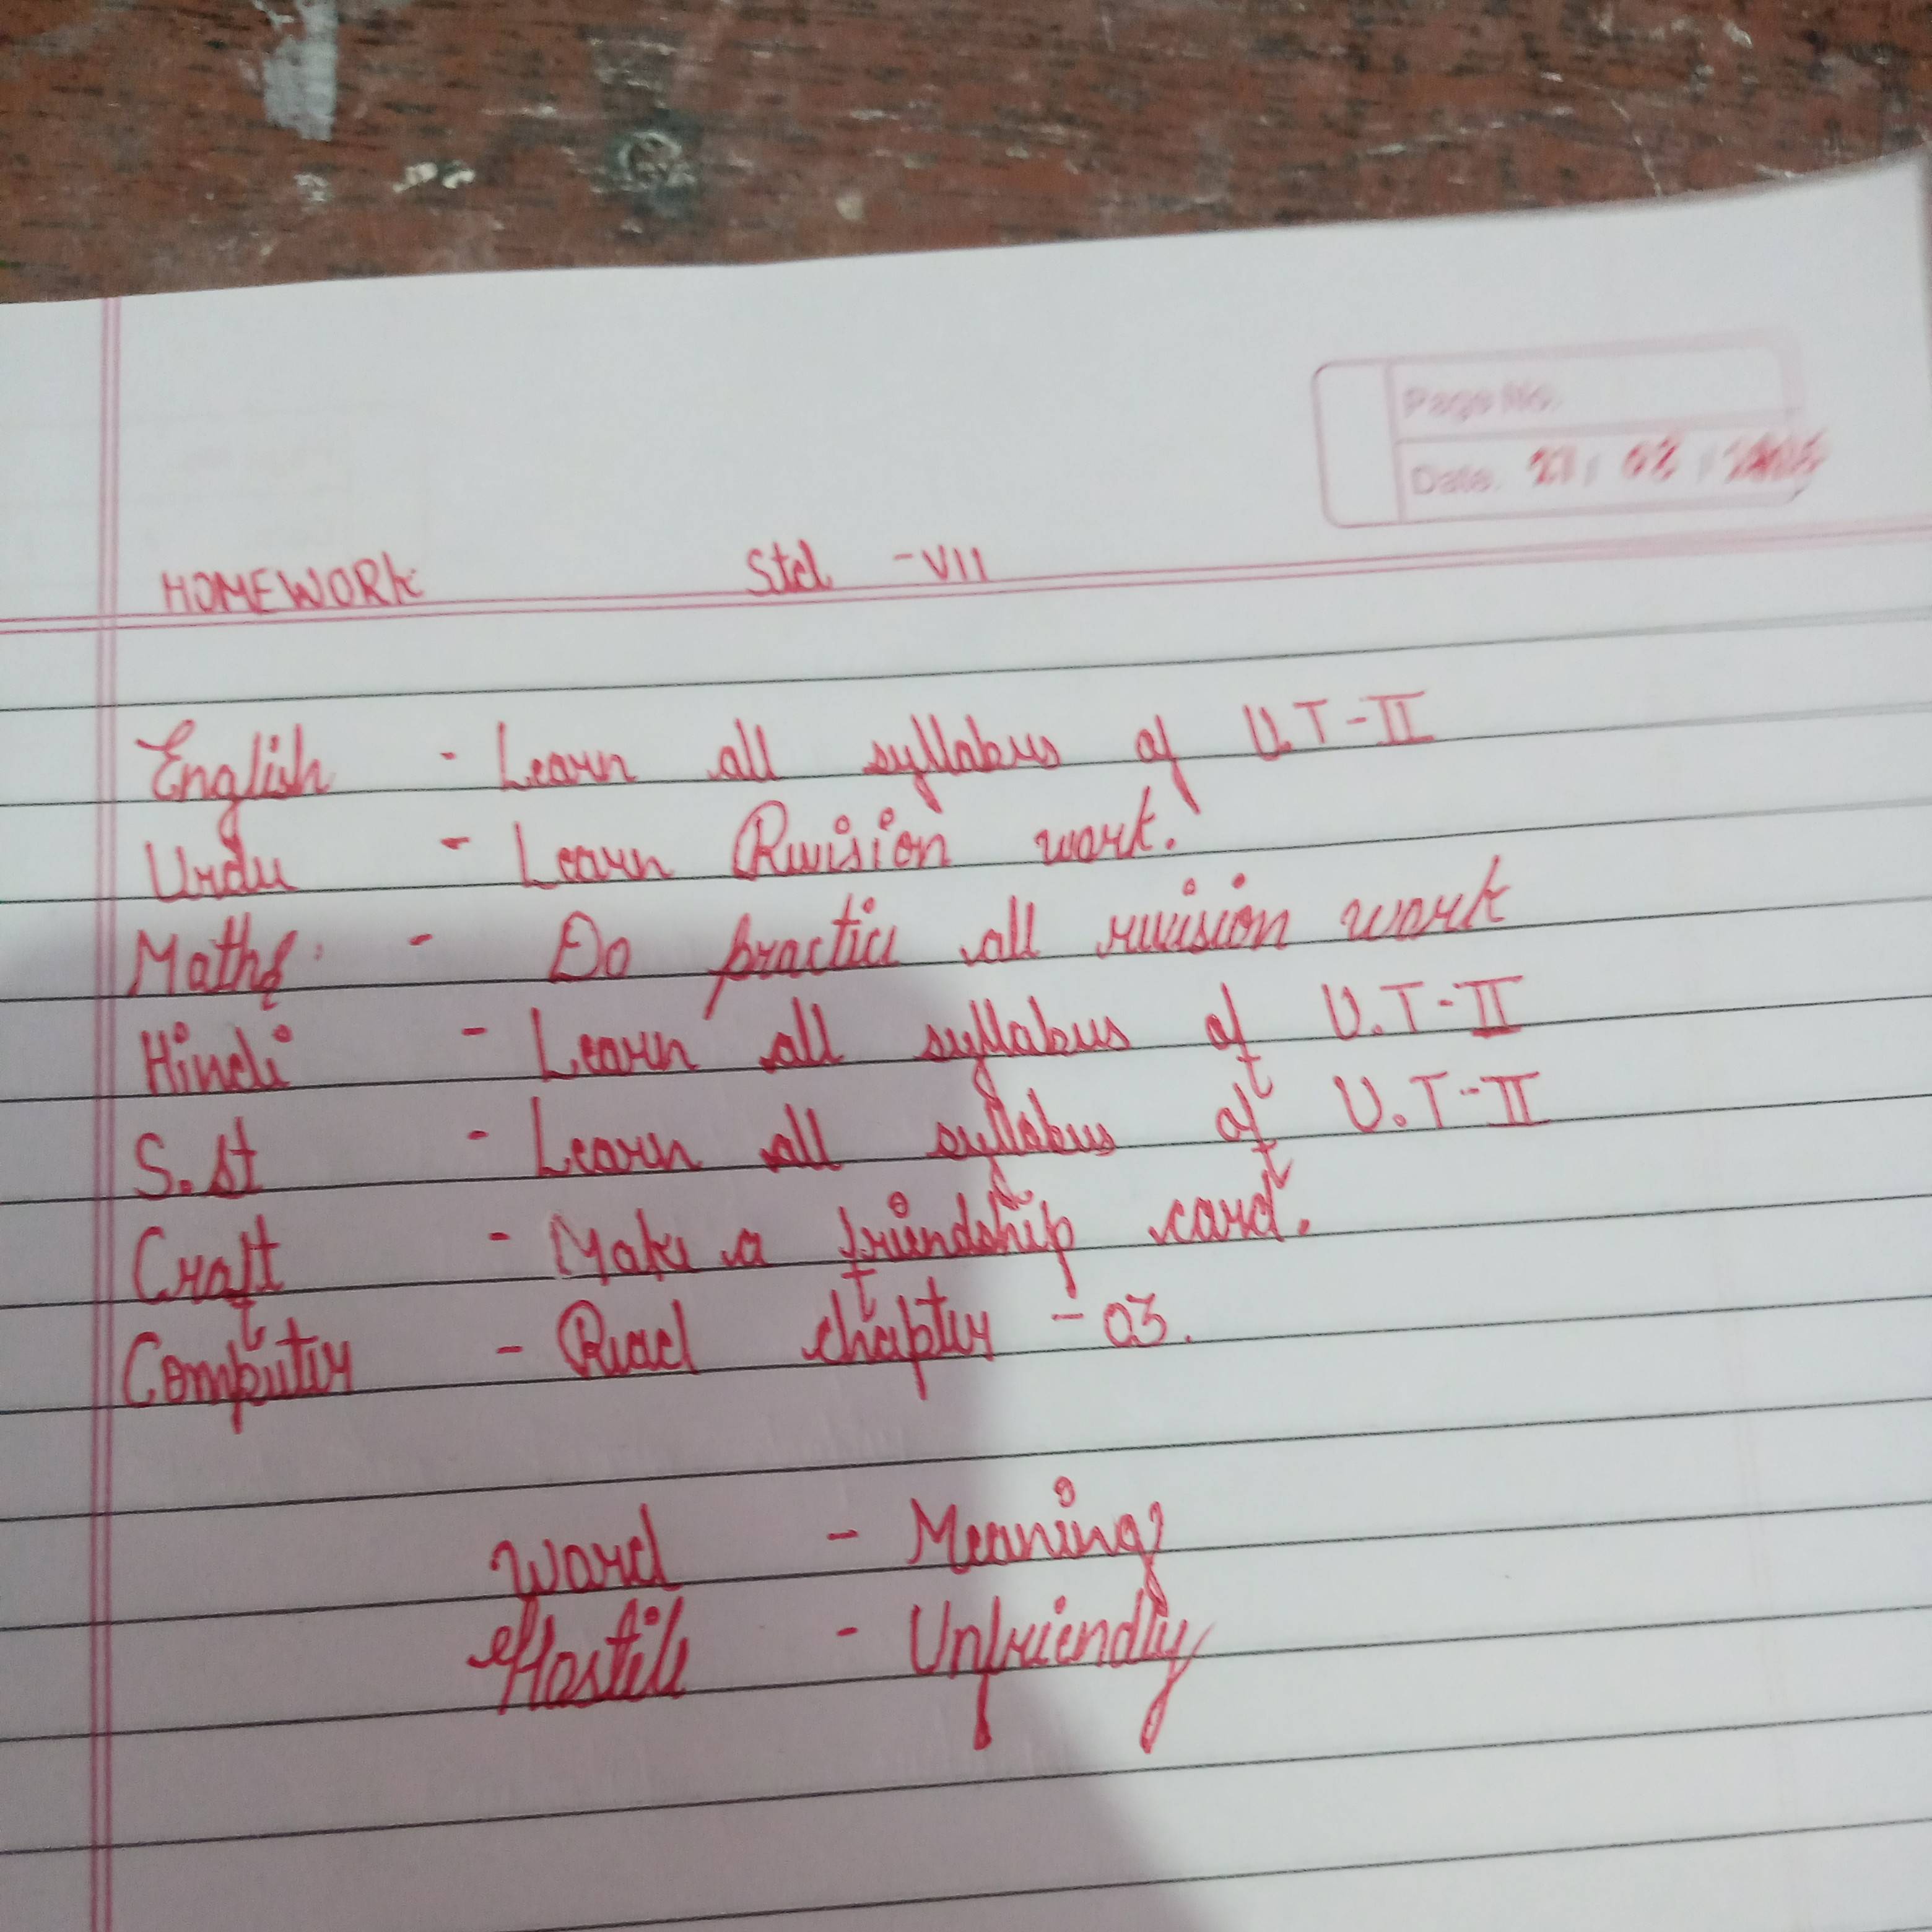 Page No.
Date.
HOMEWORK Std - VII
English - Learn all syllabus of U.T-II
Urdu - Learn Revision work.
Maths - Do practice all revision work
Hindi - Learn all syllabus of U.T-II
S.st - Learn all syllabus of U.T-II
Craft - Make a friendship card.
Computer - Read chapter - 03.
Word - Meaning
Hostile - Unfriendly